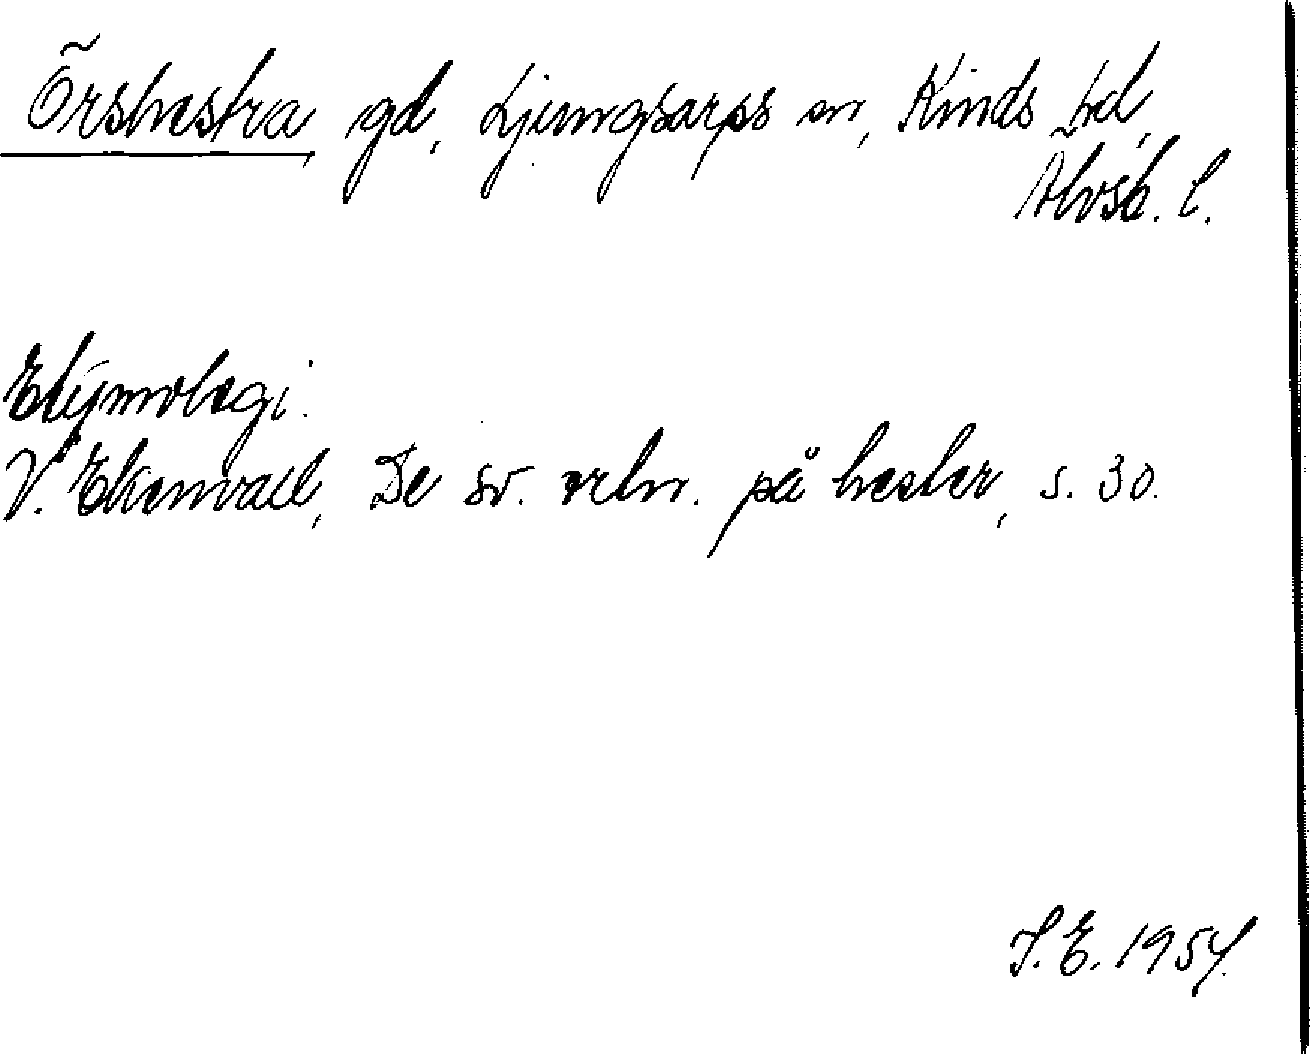 Örshestra, gd, Ljungsarps sn, Kinds hd,
Älvsb. l.
Etymologi.
V. Ekenvall, De sv. ortn. på hester, s. 30.
S. E. 1954.